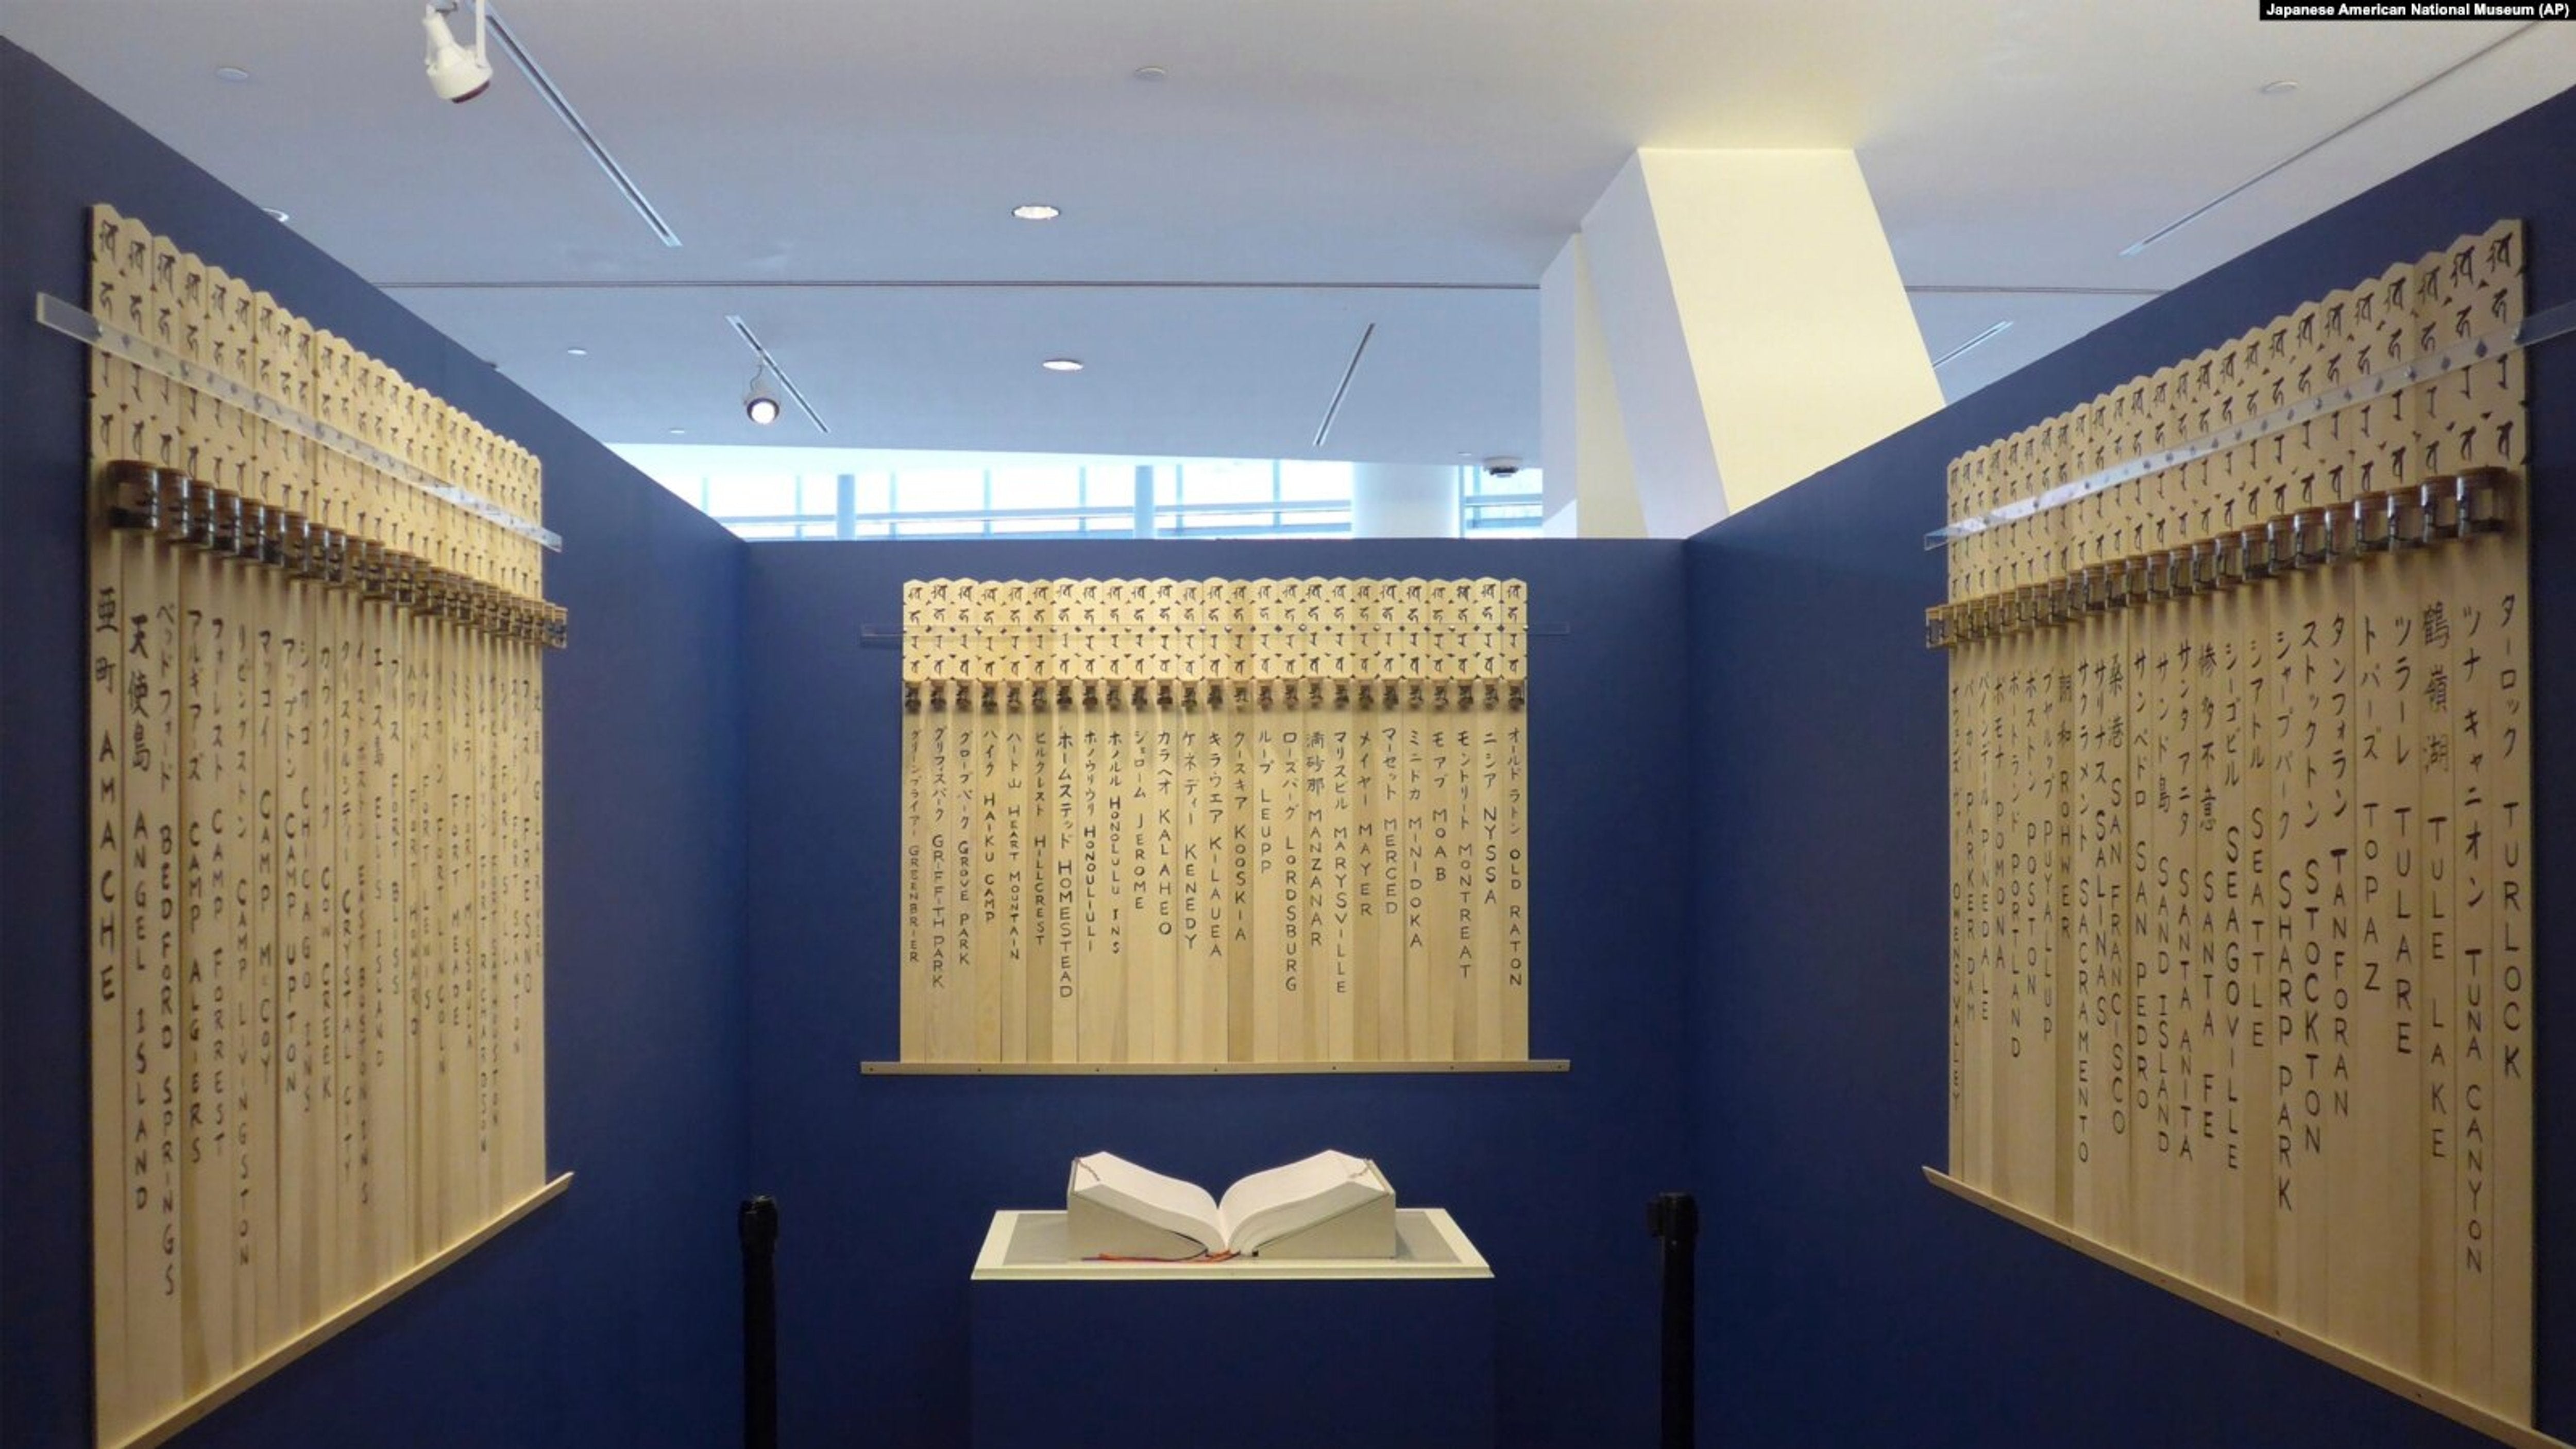 Japanese American National Museum (AP)
亜町 AMACHE
天使島 ANGEL ISLAND
ベッドフォード BEDFORD SPRINGS
アルギアーズ CAMP ALGIERS
フォーレスト CAMP FORREST
リビングストン CAMP LIVINGSTON
マッコイ CAMP McCOY
アップトン CAMP UPTON
シカゴ CHICAGO INS
カウクリーク COW CREEK
クリスタルシティー CRYSTAL CITY
イーストボストン EAST BOSTON INS
エリス島 ELLIS ISLAND
FORT BLISS
FORT HOWARD
FORT LEWIS
FORT LINCOLN
FORT MEADE
FORT MISSOULA
FORT RICHARDSON
FORT SAM HOUSTON
FORT SILL
FORT STANTON
FRESNO
GILA RIVER
グリーンブライアー GREENBRIER
グリフィスパーク GRIFFITH PARK
グローブパーク GROVE PARK
ハイク HAIKU CAMP
ハート山 HEART MOUNTAIN
ヒルクレスト HILLCREST
ホームステッド HOMESTEAD
ホノウリウリ HONOULIULI
ホノルル HONOLULU INS
ジェローム JEROME
カラヘオ KALAHEO
ケネディー KENEDY
キラウエア KILAUEA
クースキア KOOSKIA
ループ LEUPP
ローズバーグ LORDSBURG
満砂那 MANZANAR
マリスビル MARYSVILLE
メイヤー MAYER
マーセット MERCED
ミニドカ MINIDOKA
モアブ MOAB
モントリート MONTREAT
ニシア NYSSA
オールド ラトン OLD RATON
OWENS VALLEY
パーカー PARKER DAM
パインデール PINEDALE
ポモナ POMONA
ポートランド PORTLAND
ポストン POSTON
プヤルップ PUYALLUP
朗和 ROHWER
サクラメント SACRAMENTO
サリナス SALINAS
桑港 SAN FRANCISCO
サンペドロ SAN PEDRO
サンド島 SAND ISLAND
サンタ アニタ SANTA ANITA
惨多不意 SANTA FE
シーゴビル SEAGOVILLE
シアトル SEATTLE
シャープパーク SHARP PARK
ストックトン STOCKTON
タンフォラン TANFORAN
トパーズ TOPAZ
ツラーレ TULARE
鶴嶺湖 TULE LAKE
ツナ キャニオン TUNA CANYON
ターロック TURLOCK